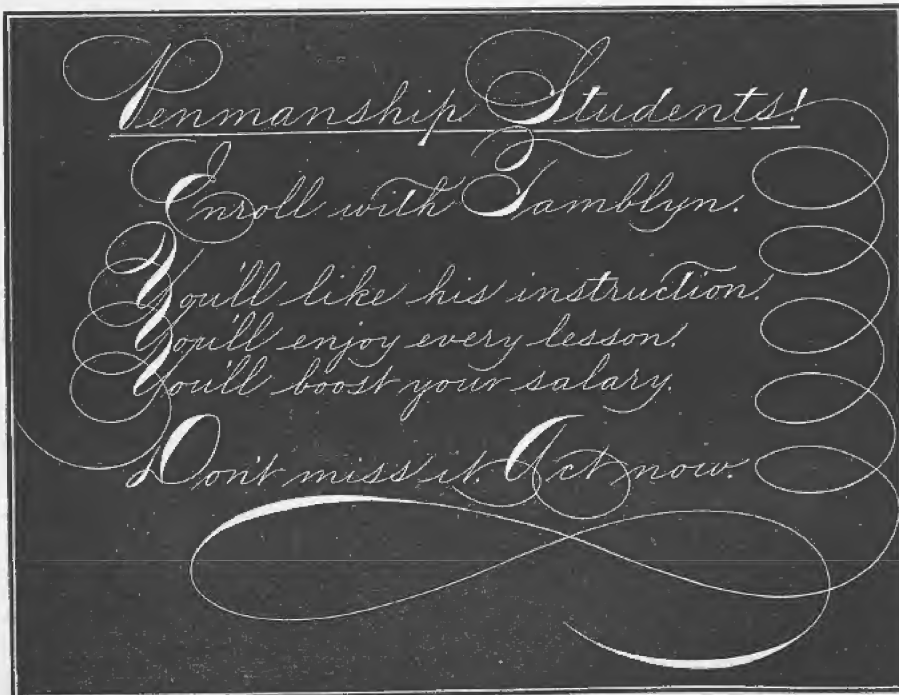 Penmanship Students!
Enroll with Tamblyn.
You'll like his instruction.
You'll enjoy every lesson.
You'll boost your salary.
Don't miss it. Act now.